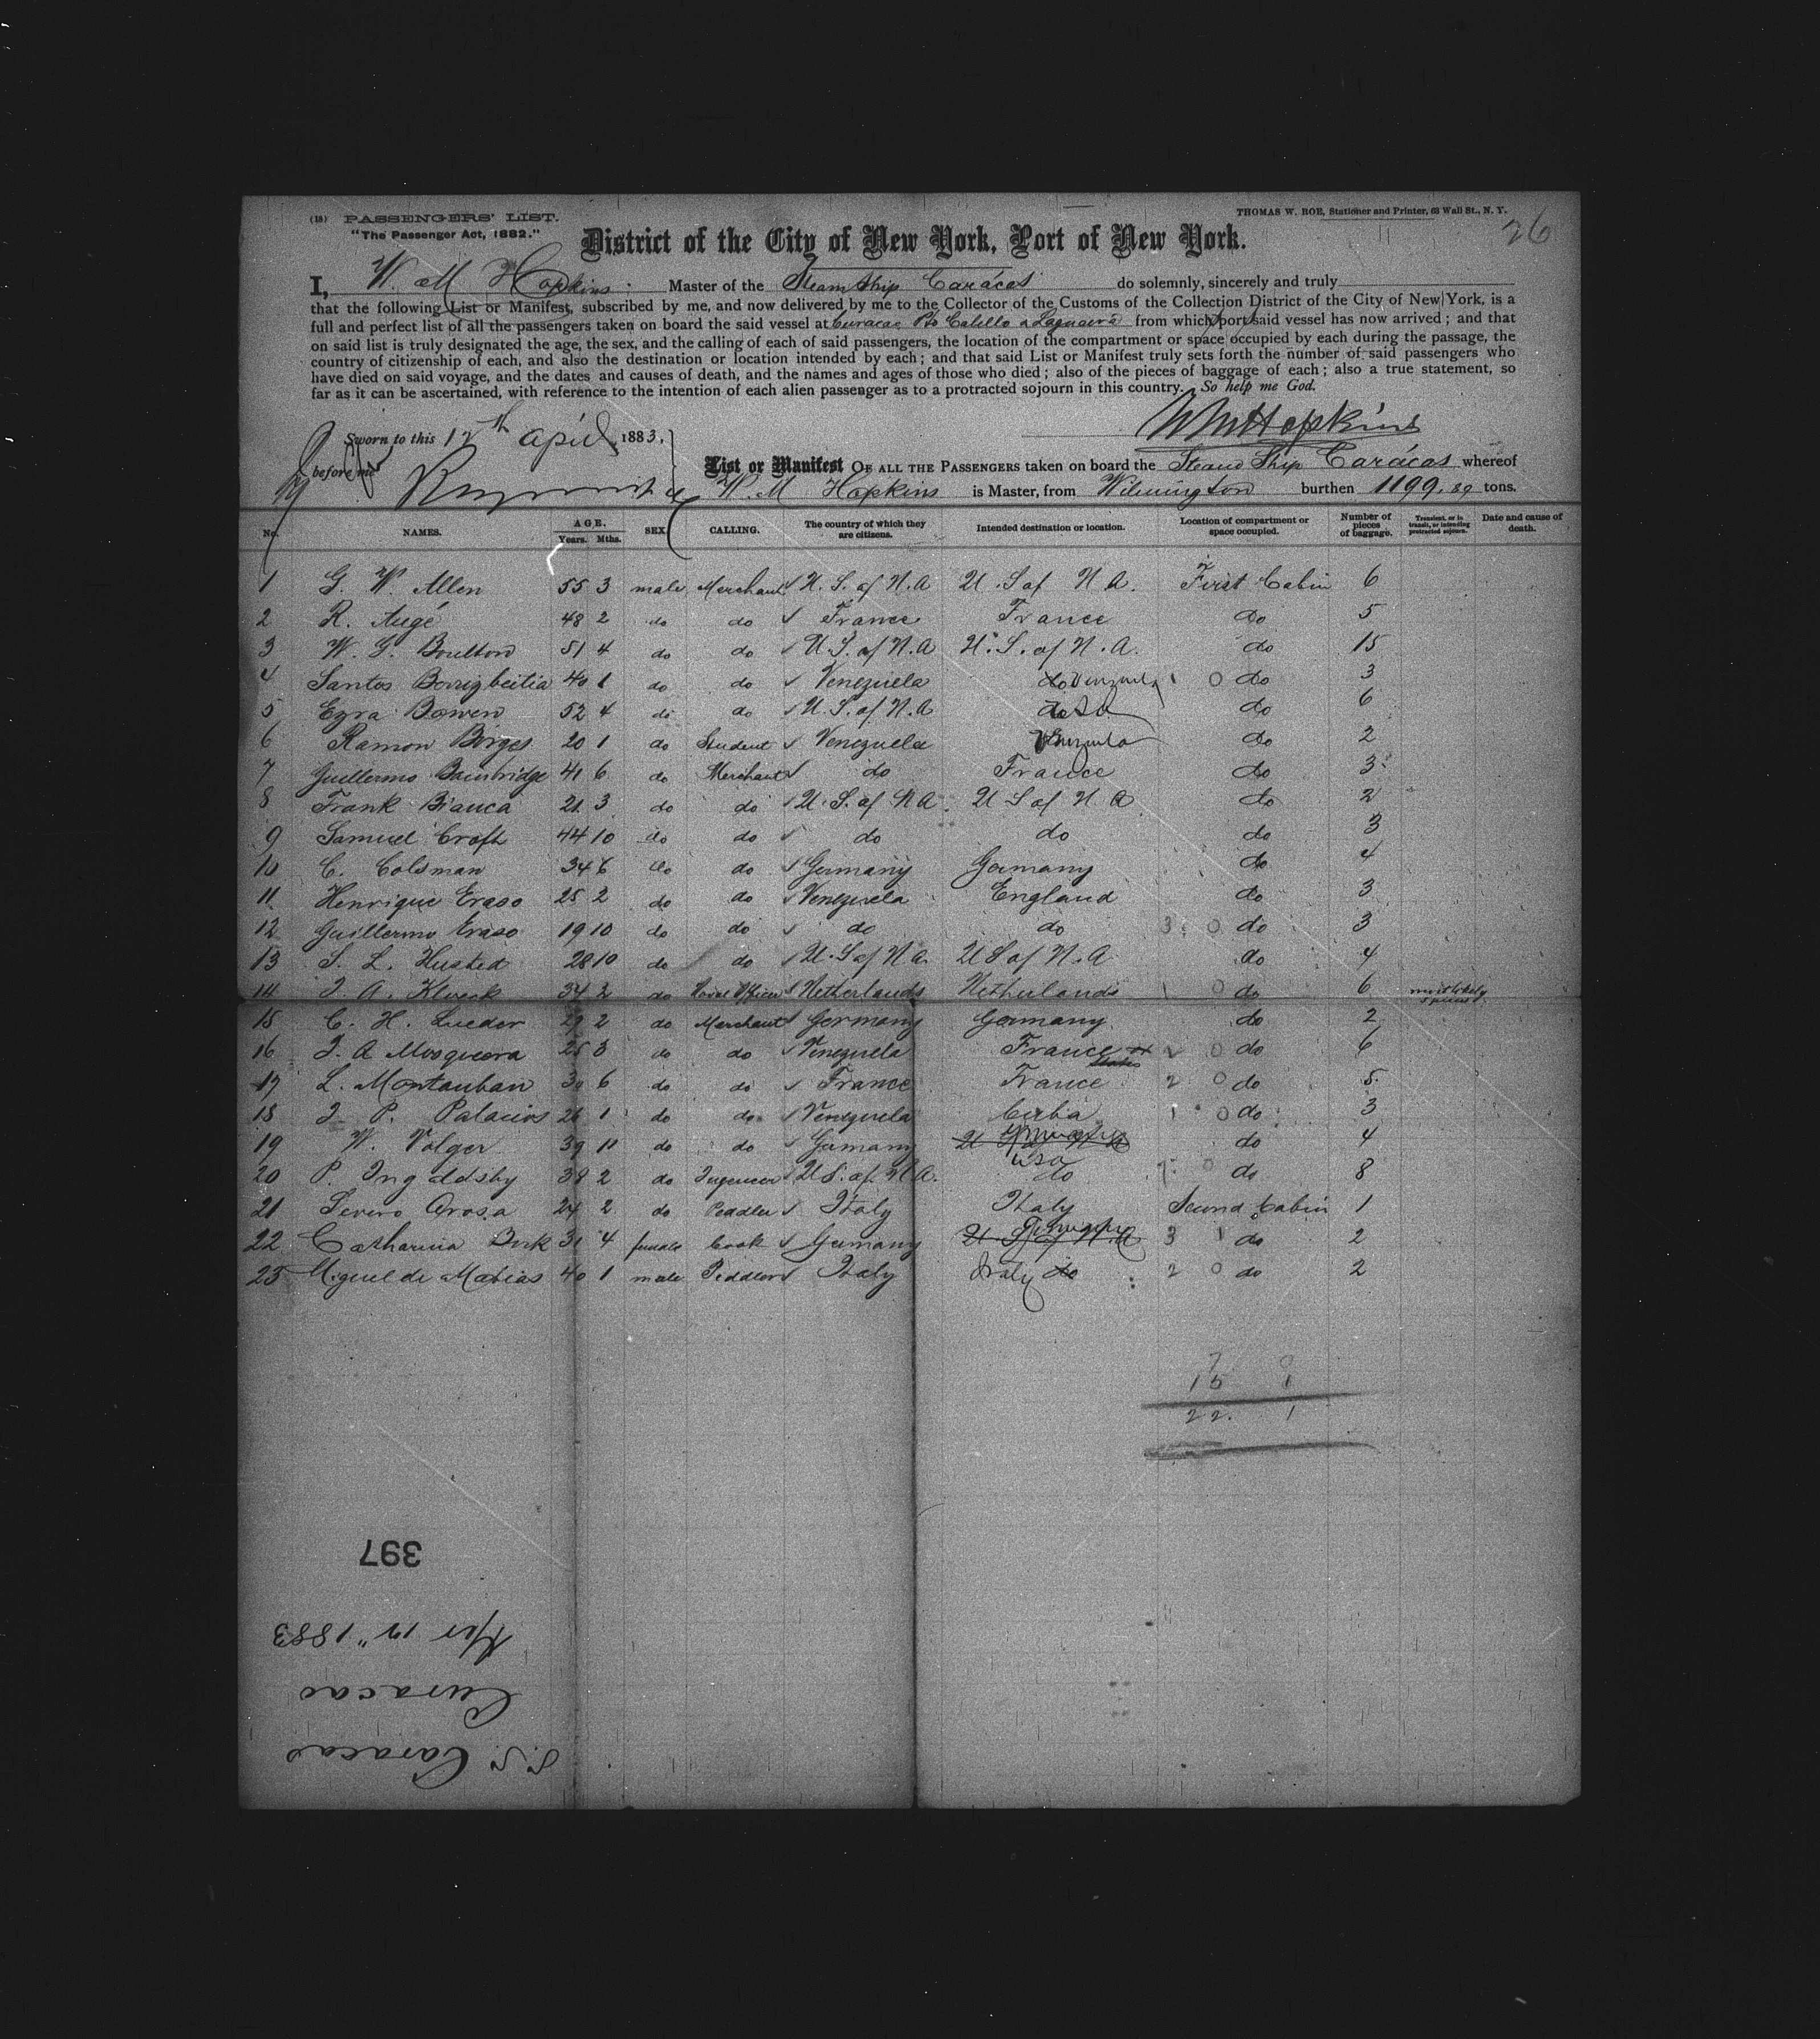 (18) PASSENGERS' LIST.
"The Passenger Act, 1882."
THOMAS W. ROE, Stationer and Printer, 63 Wall St., N. Y.
26
District of the City of New York, Port of New York.
I, W. M Hopkins Master of the Steam Ship Carácas do solemnly, sincerely and truly
that the following List or Manifest, subscribed by me, and now delivered by me to the Collector of the Customs of the Collection District of the City of New York, is a
full and perfect list of all the passengers taken on board the said vessel at Curacao Pto Cabello a Laguaira from which port said vessel has now arrived; and that
on said list is truly designated the age, the sex, and the calling of each of said passengers, the location of the compartment or space occupied by each during the passage, the
country of citizenship of each, and also the destination or location intended by each; and that said List or Manifest truly sets forth the number of said passengers who
have died on said voyage, and the dates and causes of death, and the names and ages of those who died; also of the pieces of baggage of each; also a true statement, so
far as it can be ascertained, with reference to the intention of each alien passenger as to a protracted sojourn in this country. So help me God.
WM Hopkins
Sworn to this 12th April, 1883,
before me
List or Manifest OF ALL THE PASSENGERS taken on board the Steam Ship Carácas whereof
W. M Hopkins is Master, from Wilmington burthen 1199.89 tons.
No. NAMES. AGE. Years. Mths. SEX CALLING. The country of which they are citizens. Intended destination or location. Location of compartment or space occupied. Number of pieces of baggage. Transient, or in transit, or intending protracted sojourn. Date and cause of death.
1 G. W. Allen 55 3 male Merchant U. S. of N. A U. S of N A. First Cabin 6
2 R. Augé 48 2 do do France France do 5
3 W. G. Boulton 51 4 do do U. S. of N. A U. S. of N. A. do 15
4 Santos Berrigbeitia 40 1 do do Venezuela do Venezuela 1 0 do 3
5 Ezra Bowen 52 4 do do U. S. of N. A do do 6
6 Ramon Borges 20 1 do Student Venezuela Venezuela do 2
7 Guillermo Bainbridge 41 6 do Merchant do France do 3
8 Frank Bianca 21 3 do do U. S. of N A U S of N. A do 2
9 Samuel Croft 44 10 do do do do do 3
10 C. Colsman 34 6 do do Germany Germany do 4
11 Henrique Eraso 25 2 do do Venezuela England do 3
12 Guillermo Eraso 19 10 do do do do 3 0 do 3
13 S. L. Husted 28 10 do do U. S of N a U S of N. A do 4
14 J. A. Kluck 34 2 do Naval Officer Netherlands Netherlands 1 0 do 6 most likely
15 C. H. Lueder 29 2 do Merchant Germany Germany do 2
16 J. A Mosquera 25 3 do do Venezuela France States 2 0 do 6
17 L. Montauban 30 6 do do France France 2 0 do 5
18 J. P. Palacios 26 1 do do Venezuela Cuba 1 0 do 3
19 W. Volger 39 11 do do Germany U S of N A Germany do 4
20 P. Ingoldsby 38 2 do Ingeneer U S. of N A. USA do 0 do 8
21 Severo Orosa 24 2 do Peddler Italy Italy Second Cabin 1
22 Catharina Burk 31 4 female Cook Germany U S of N. A Germany 3 1 do 2
23 Miguel de Matias 40 1 male Peddler Italy Italy do 2 0 do 2
7 0
15 1
22. 1
397
Apr 12" 1883
Curacao
S.S. Caracas